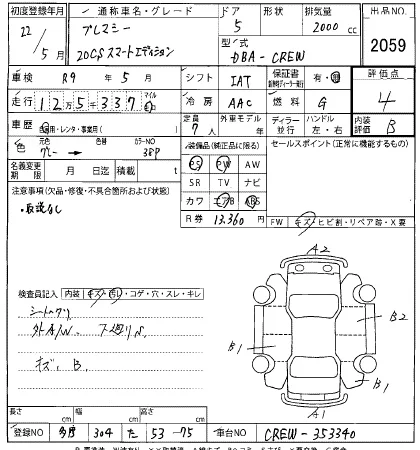 初度登録年月 通称車名・グレード ドア 形状 排気量 出品NO
22/5月 プレマシー 5 2000 cc 2059
20CS スマートエディション 型式 DBA-CREW
車検 R9年 5月 シフト IAT 保証書 有・無 評価点
走行 125337 マイル 冷房 AAC 燃料 G 4
車歴 自家用・レンタ・事業用( ) 定員 7人 外車モデル年 ディラー 並行 ハンドル 左・右 内装評価 B
色 元色 グレー→ 色替 カラーNO 38P 装備品(純正品に限る) セールスポイント(正常に機能するもの)
PS PW AW
名義変更期限 月 日迄 積載 t SR TV ナビ
注意事項(欠品・修復・不具合箇所および状態) カワ エアB ABS
R券 13.360円
FW キズ・ヒビ割・リペア跡・X要
A2
検査員記入 内装 キズ・汚レ・コゲ・穴・スレ・キレ
外A/W 下廻りS
キズ、B
B1
B2
B1
A1
長さ cm 幅 cm 高さ cm
登録NO 多摩 304 た 53-75 車台NO CREW-353340